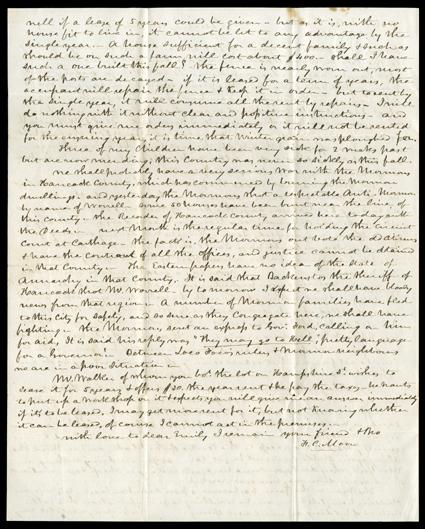 well if a lease of 5 years could be given - but as it is, with no
house fit to live in, it cannot be let to any advantage by the
single year. A house sufficient for a decent family & such as
should be on such a farm, will cost about $400 - Shall I have
such a one built this fall? The fence is nearly worn out, most
of the posts are decayed - if it is leased for a term of years, the
occupant will repair the fence & keep it in order - but to rent by
the single year, it will consume all the rent by repairs - I will
do nothing with it without clear and positive instructions - and
you must give me orders immediately or it will not be rented
for the ensuing year, it is time that winter grain was ploughed for.
Three of my children have been very sick for 2 weeks past
but are now mending; this County was never so sickly as this fall.
We shall probably have a very serious War with the Mormons
in Hancock County, which has commenced by burning the Mormon
dwellings - and yesterday the Mormons shot a respectable Anti-Mormon
by name of Worrell - Some 50 houses have been burnt near the line of
this County - The Recorder of Hancock County, arrived here to day with
the Deeds - next Month is the regular time for holding the Circuit
Court at Carthage - The fact is, the Mormons out vote the old citizens
& have the control of all the offices, and justice cannot be obtained
in that County - The Eastern papers have no idea of the state of
Anarchy in that County. It is said that Backenstos the Sheriff of
Hancock shot Mr. Worrell - by tomorrow I expect we shall have bloody
news from that region - A number of Mormon families have fled
to this City for safety, and so sure as they Congregate here, we shall have
fighting - The Mormons sent an express to Gov. Ford, calling on him
for aid, it is said his reply was "they may go to Hell", pretty language
for a Governor - Between Loco Foco rulers & Mormon neighbours
we are in a poor situation -
Mr. Walker of whom you bot the lot on Hampshire St. wishes to
lease it for 5 years & offers $20. the year rent & he pay the taxes - he wants
to put up a work shop on it & expects you will give me an answer immediately
if it is to be leased, I may get more rent for it, but not knowing whether
it can be leased, of course I cannot act in the premises.
with love to dear Emily I remain your friend & Bro
H. C. Moore